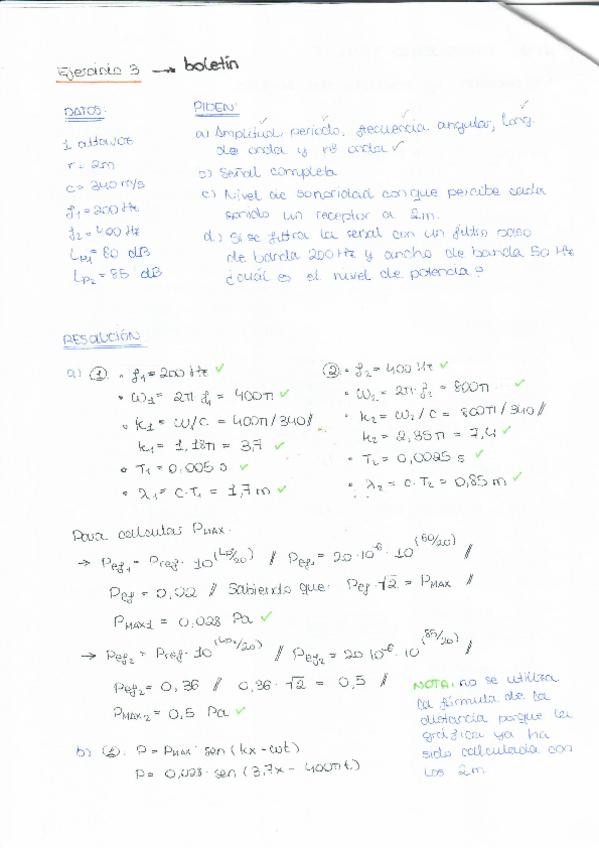 Ejercicio 3 → boletín
DATOS:
1 altavoz
r = 2m
c = 340 m/s
f₁ = 200 Hz
f₂ = 400 Hz
Lp₁ = 60 dB
Lp₂ = 85 dB
PIDEN:
a) Amplitud, periodo, frecuencia angular, long.
de onda y nº onda ✓
b) Señal completa
c) Nivel de sonoridad con que percibe cada
sonido un receptor a 2m.
d) Si se filtra la señal con un filtro paso
de banda 200 Hz y ancho de banda 50 Hz
¿cuál es el nivel de potencia?
RESOLUCIÓN
a) ① • f₁ = 200 Hz ✓
• ω₁ = 2π f₁ = 400π ✓
• k₁ = ω/c = 400π/340 //
k₁ = 1,18π = 3,7 ✓
• T₁ = 0,005 s ✓
• λ₁ = c·T₁ = 1,7 m ✓
② • f₂ = 400 Hz ✓
• ω₂ = 2π·f₂ = 800π ✓
• k₂ = ω₂/c = 800π/340 //
k₂ = 2,35π = 7,4 ✓
• T₂ = 0,0025 s ✓
• λ₂ = c·T₂ = 0,85 m ✓
Para calcular PMAX.
→ Pef₁ = Pref · 10^(/20) // Pef₁ = 20·10⁻⁶ · 10^(60/20) //
Pef = 0,02 // Sabiendo que: Pef·√2 = PMAX //
PMAX1 = 0,028 Pa ✓
→ Pef₂ = Pref · 10^(/20) // Pef₂ = 20·10⁻⁶ · 10^(85/20) //
Pef₂ = 0,36 // 0,36·√2 = 0,5 //
PMAX₂ = 0,5 Pa ✓
NOTA: no se utiliza
la fórmula de la
distancia porque la
gráfica ya ha
sido calculada con
los 2m.
b) ①. P = PMAX · sen (kx - ωt)
P = 0,028 · sen (3,7x - 400πt)